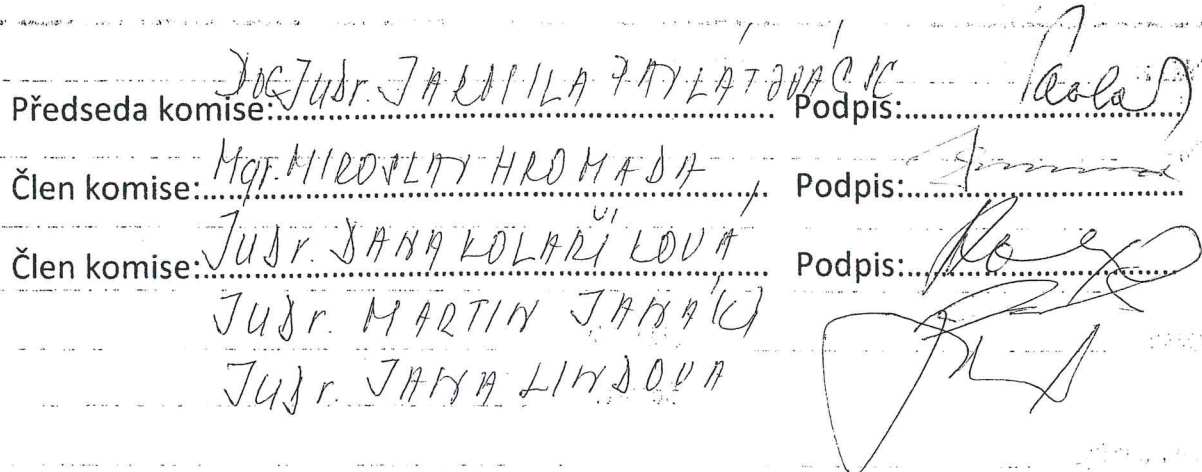 Předseda komise: Doc. JUDr. JARMILA PAVLÁTOVÁ CSC Podpis:
Člen komise: Mgr. MIROSLAV HROMADA Podpis:
Člen komise: JUDr. DANA KOLAŘÍKOVÁ Podpis:
JUDr. MARTIN
JUDr. JANA LINDOVA